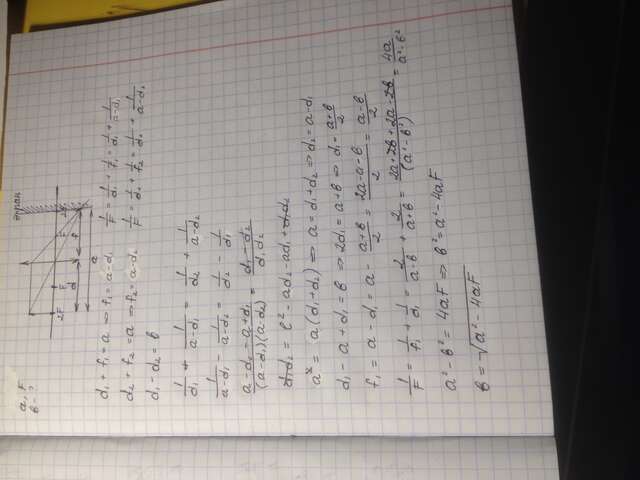 a, F
в - ?
экран
2F F F 2F
d f
a
d₁ + f₁ = a ⇒ f₁ = a-d₁ 1/F = 1/d₁ + 1/f₁ = 1/d₁ + 1/(a-d₁)
d₂ + f₂ = a ⇒ f₂ = a-d₂ 1/F = 1/d₂ + 1/f₂ = 1/d₂ + 1/(a-d₂)
d₁ - d₂ = в
1/d₁ + 1/(a-d₁) = 1/d₂ + 1/(a-d₂)
1/(a-d₁) - 1/(a-d₂) = 1/d₂ - 1/d₁
(a-d₂-a+d₁)/((a-d₁)(a-d₂)) = (d₁-d₂)/(d₁d₂)
d₁d₂ = ² - ad₂ - ad₁ + d₁d₂
a² = a(d₁+d₂) ⇒ a = d₁+d₂ ⇒ d₂ = a-d₁
d₁ - a + d₁ = в ⇒ 2d₁ = a+в ⇒ d₁ = (a+в)/2
f₁ = a - d₁ = a - (a+в)/2 = (2a-a-в)/2 = (a-в)/2
1/F = 1/f₁ + 1/d₁ = 2/(a-в) + 2/(a+в) = (2a+2в+2a-2в)/(a²-в²) = 4a/(a²-в²)
a² - в² = 4aF ⇒ в² = a² - 4aF
в = √(a² - 4aF)